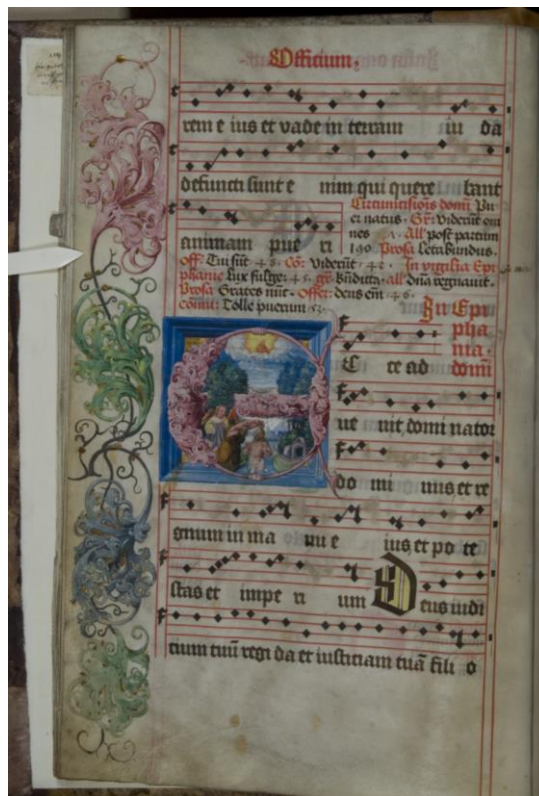 Officium.
rem e ius et vade in terram iu da
defuncti sunt e nim qui quere bant
animam pue ri
Circumcisiōis domī Pu
er natus. Gr: Viderūt om
nes All' post partum
190 Prosa Letabundus.
Off: Tui sūt 48. Cō: Viderūt 42. In vigilia Epi
phanie Lux fulge: 45. gr: Bn̄dicta. all' Dn̄s regnauit.
Prosa Grates nūc. Offer: deus em̄ 46.
cōmu: Tolle puerum 52.
In Epi
pha
nia.
domī
E cce ad
ue nit domi nator
do mi nus et re
gnum in ma nu e ius et po te
stas et impe ri um Deus iudi
cium tuū regi da et iusticiam tuā fili o